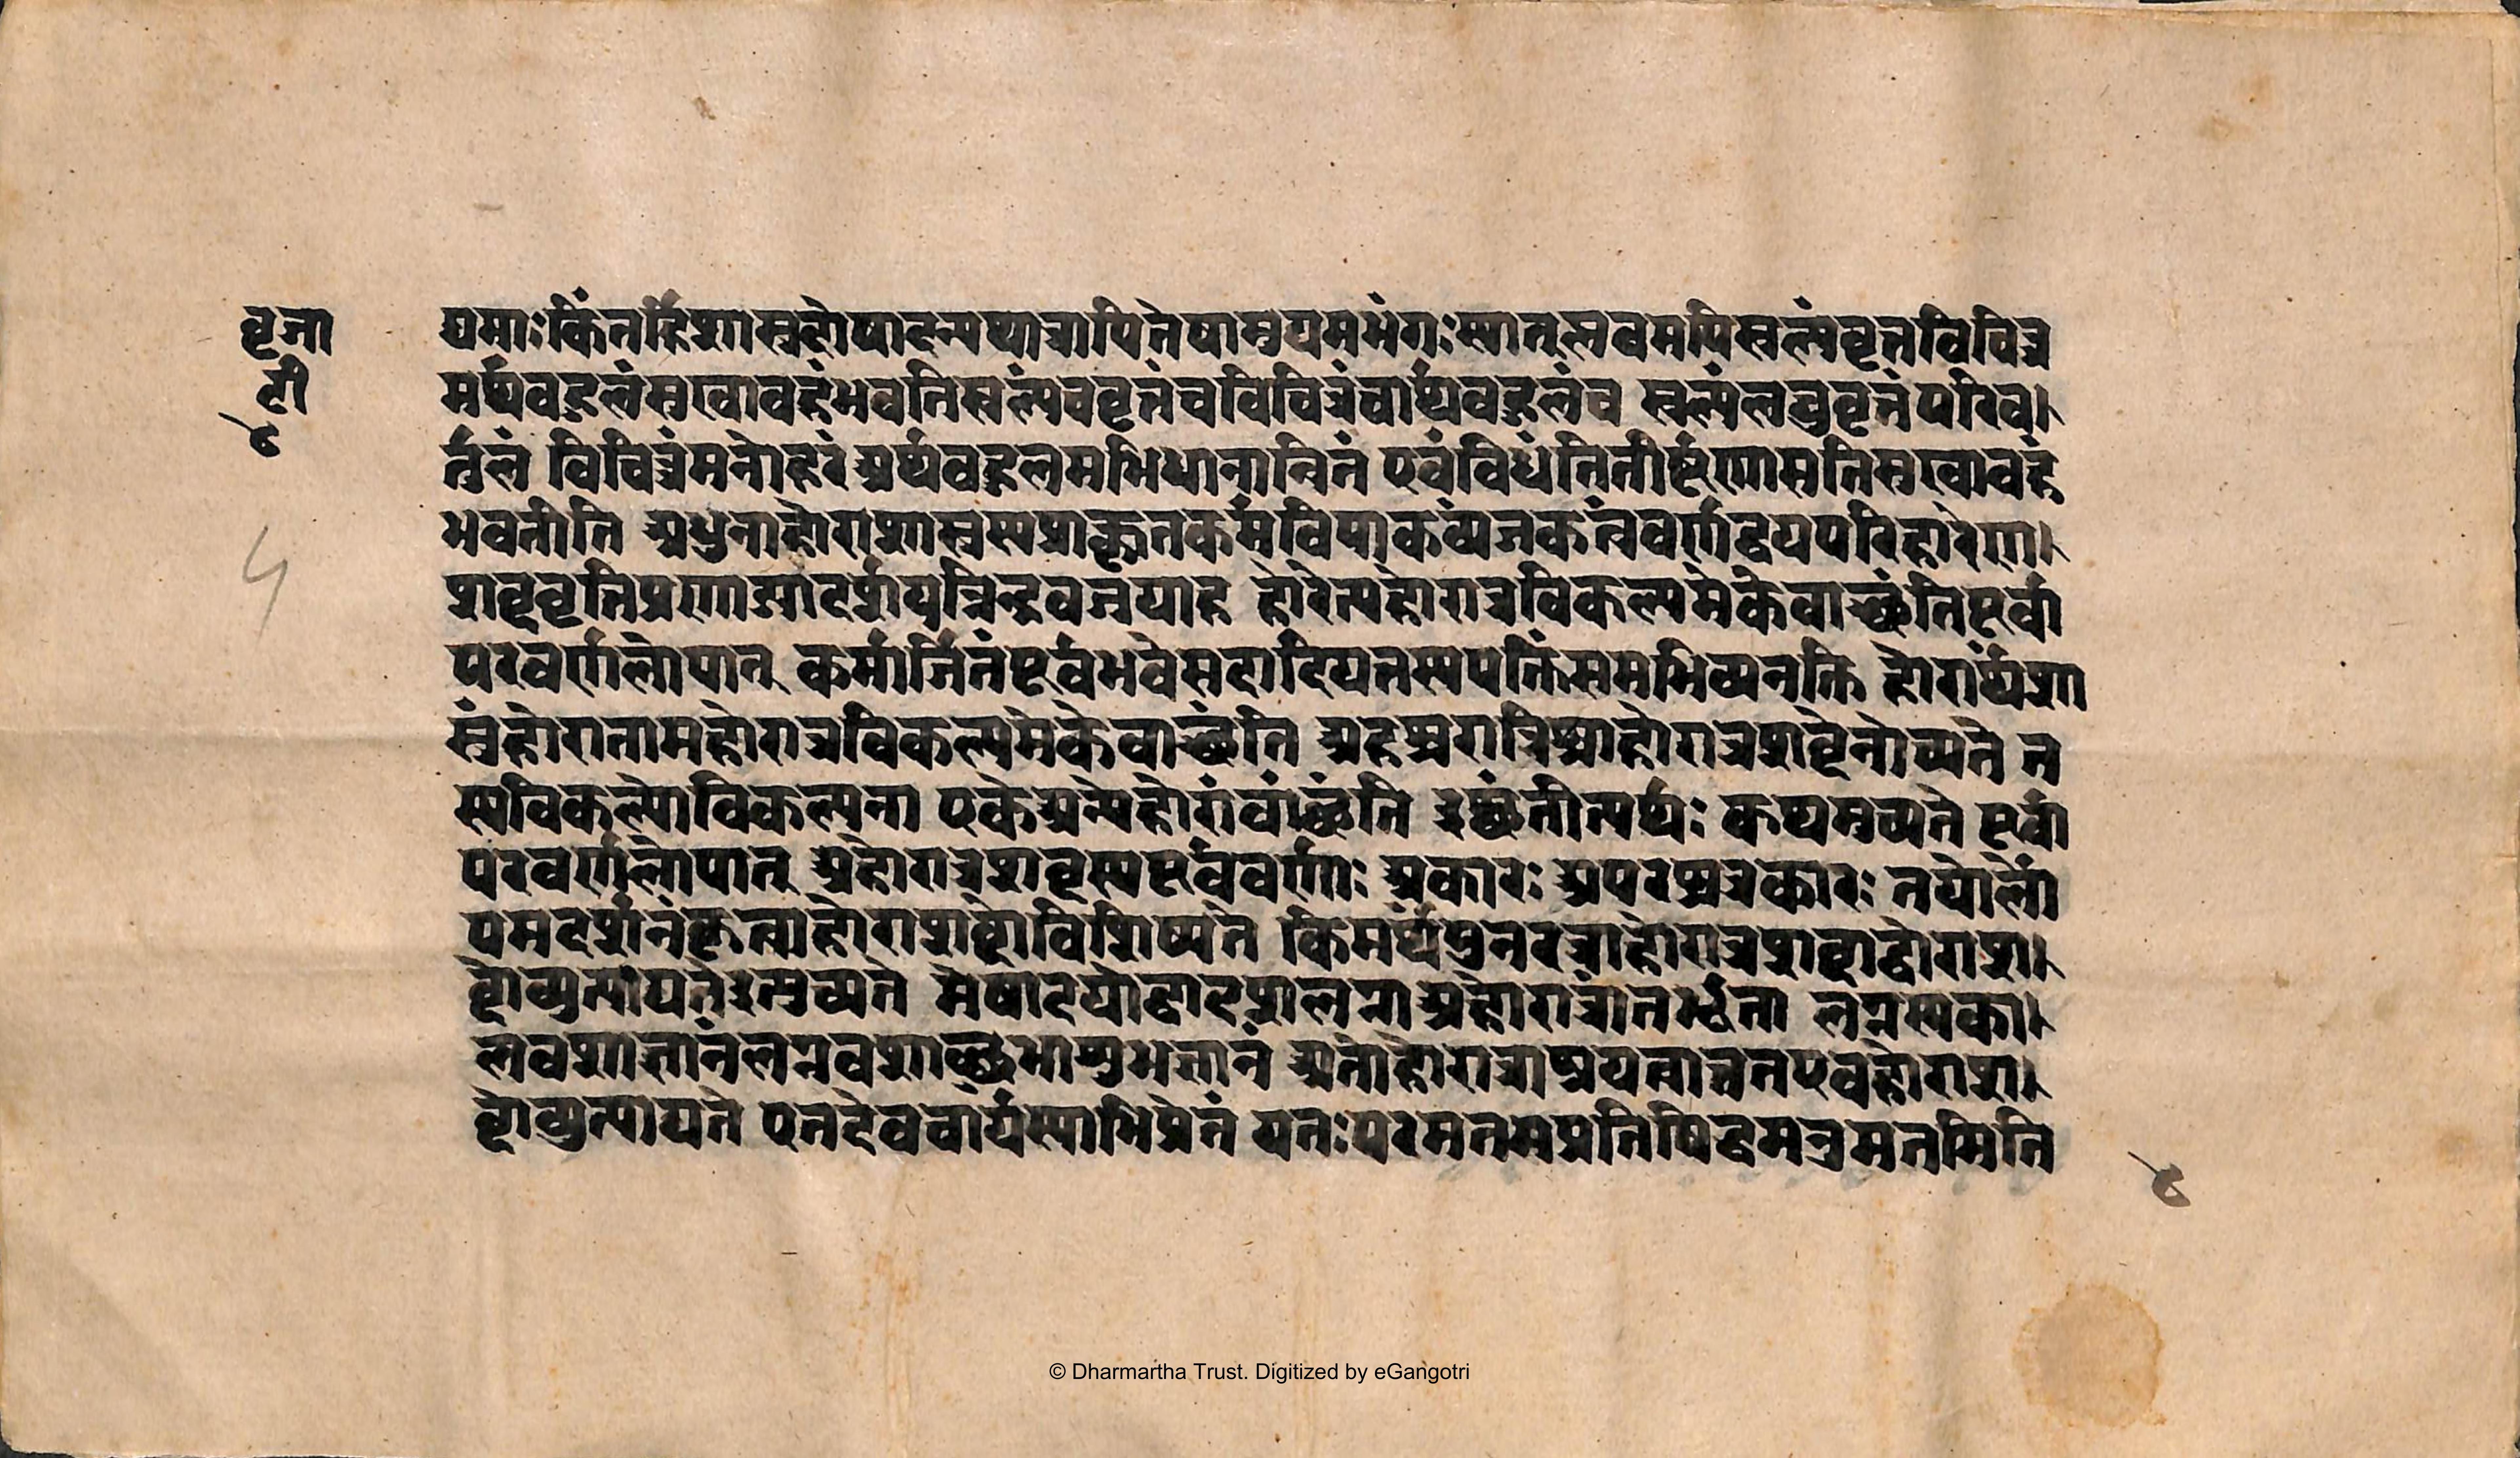 वृजा
टी
६
द्यमाः किंतर्हि शास्त्रदोषादन्यथात्रापि तेषामुद्यमभंगः स्यात् लवमपि स्वल्पं वृत्तविचित्र
मर्थबहुलं सखावहं भवति स्वल्पं च वृत्तं च विचित्रं चार्थबहुलं च स्वल्पं लघु वृत्तं परिव।
र्तुलं विचित्रं मनोहरं अर्थबहुलमभिधानान्वितं एवंविधं तितीर्षूणां सति सखावहं
भवतीति अधुना होराशास्त्रस्य प्राक्कृतकर्मविपाकव्यंजकत्वं वर्णद्वयपरिहारेणा।
शब्दवृत्तिप्रणाड्या दर्शयन्निन्द्रवज्रयाह होरेत्यहोरात्रविकल्पमेके वाञ्छंति पूर्वा
परवर्णलोपात् कर्मार्जितं पूर्वभवे सदादि यत्तस्य पक्तिं समभिव्यनक्ति होरार्थं शा
स्त्रं होरा तामहोरात्रविकल्पमेके वाञ्छंति अहश्च रात्रिश्चाहोरात्रशब्देनोच्यते त
स्य विकल्पो विकल्पना एके अन्ये होरां वांछंति इच्छंतीत्यर्थः कथमुच्यते पूर्वा
परवर्णलोपात् अहोरात्रशब्दस्य पूर्ववर्णः अकारः अपरश्च त्रकारः तयोर्लो
पमदर्शनं कृत्वा होराशब्दोवशिष्यते किमर्थं पुनरत्राहोरात्रशब्दाद्धोराश।
ब्दो व्युत्पाद्यते इत्युच्यते मेषादयो द्वादशलग्ना अहोरात्रांतर्भूता लग्नस्य का।
लवशाज्ञानं लग्नवशाच्छुभाशुभज्ञानं अतो होरात्राश्रयत्वात्तत एव होराश।
ब्दो व्युत्पाद्यते एतदेवाचार्यस्याभिप्रेतं यतः परमतमप्रतिषिद्धमनुमतमिति
६
५
© Dharmartha Trust. Digitized by eGangotri